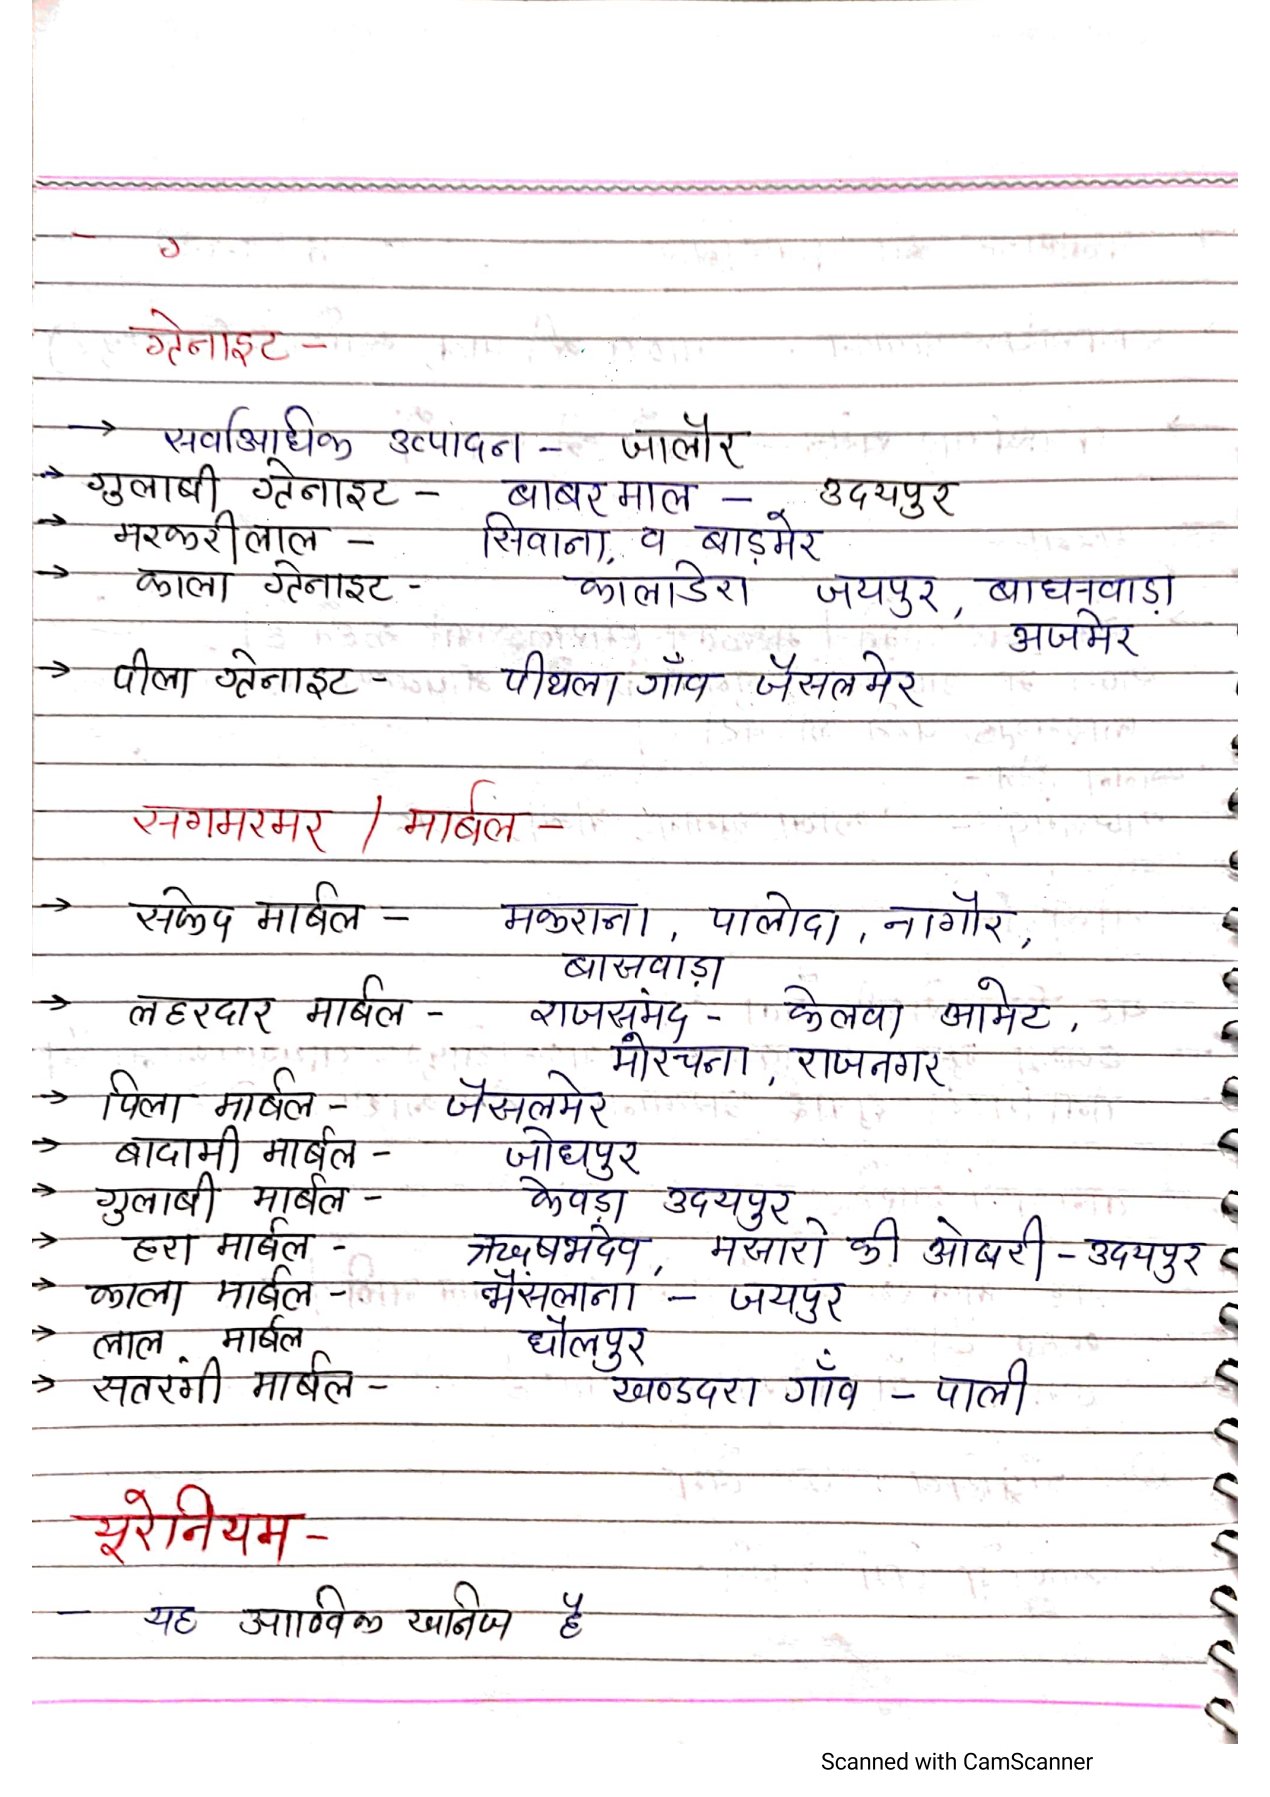 ग्रेनाइट -
→ सर्वाआधिक उत्पादन - जालौर
→ गुलाबी ग्रेनाइट - बाबर माल - उदयपुर
→ मरकरी लाल - सिवाना, व बाड़मेर
→ काला ग्रेनाइट - कालाडेरा जयपुर, बाघनवाड़ा
अजमेर
→ पीला ग्रेनाइट - पीथला गाँव जैसलमेर
सगमरमर / मार्बल -
→ सफेद मार्बल - मकराना, पालोदा, नागौर,
बासवाड़ा
→ लहरदार मार्बल - राजसमंद - केलवा आमेट,
मोरचना, राजनगर
→ पिला मार्बल - जैसलमेर
→ बादामी मार्बल - जोधपुर
→ गुलाबी मार्बल - केवड़ा उदयपुर
→ हरा मार्बल - ऋषभदेव, मसारो की ओबरी - उदयपुर
→ काला मार्बल - भैंसलाना - जयपुर
→ लाल मार्बल धौलपुर
→ सतरंगी मार्बल - खण्डदरा गाँव - पाली
यूरेनियम -
- यह आण्विक खनिज है
Scanned with CamScanner